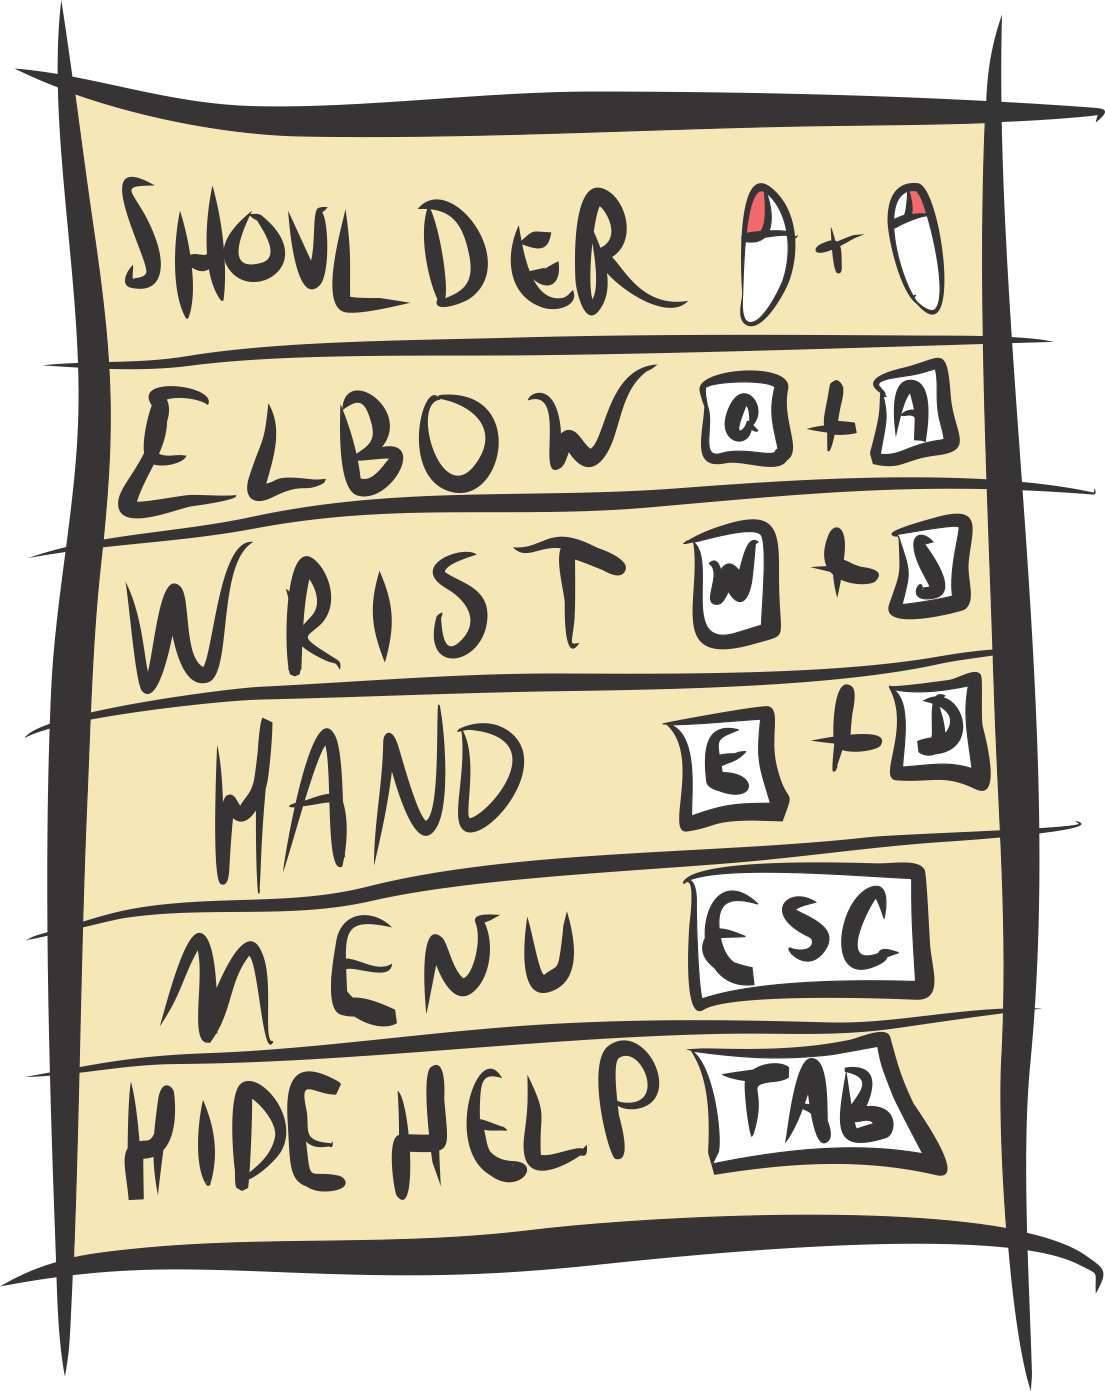 SHOULDER +
ELBOW Q + A
WRIST W + S
HAND E + D
MENU ESC
HIDE HELP TAB